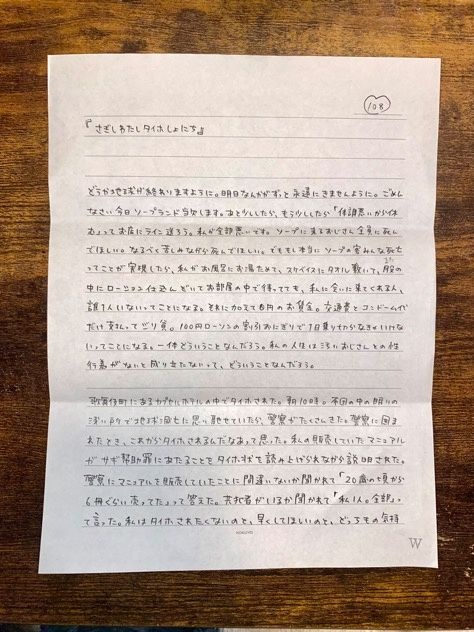 108
『さぎしわたしタイホしょにち』
どうか地球が終わりますように。明日なんかがずっと永遠にきませんように。ごめん
なさい今日ソープランド当欠します。あと少ししたら、もう少ししたら「体調悪いから休
む」ってお店にライン送ろう。私が全部悪いです。ソープに来るおじさん全員に死ん
でほしい。なるべく苦しみながら死んでほしい。でももし本当にソープの客みんな死亡
ってことが実現したら、私がお風呂にお湯ためて、スケベイスにタオル敷いて、膣の
中にローション仕込んどいてお部屋の中で待ってても、私に会いに来てくれる人、
誰1人いないってことになる。それに加えて0円のお賃金。交通費とコンドーム代
だけ支払ってヅリ貧。100円ローソンの割引おにぎりで1日乗りたらなきゃいけな
いってことになる。一体どういうことなんだろう。私の人生は汚いおじさんとの性
行為がないと成り立たないって、どういうことなんだろう。
歌舞伎町にあるカプセルホテルの中でタイホされた。朝10時。布団の中の明りの
浅い所で地球滅亡に思い馳せていたら、警察がたくさんきた。警察に囲ま
れたとき、これからタイホされるんだなあって思った。私の販売していたマニュアル
がサギ幇助罪にあたることをタイホ状を読み上げられながら説明された。
警察にマニュアルを販売していたことに間違いないか聞かれて「20歳の頃から
6冊ぐらい売ってた」って答えた。共犯者がいるか聞かれて「私1人。全部」っ
て言った。私はタイホされたくないのと、早くしてほしいのと、どっちもの気持
KOKUYO
W